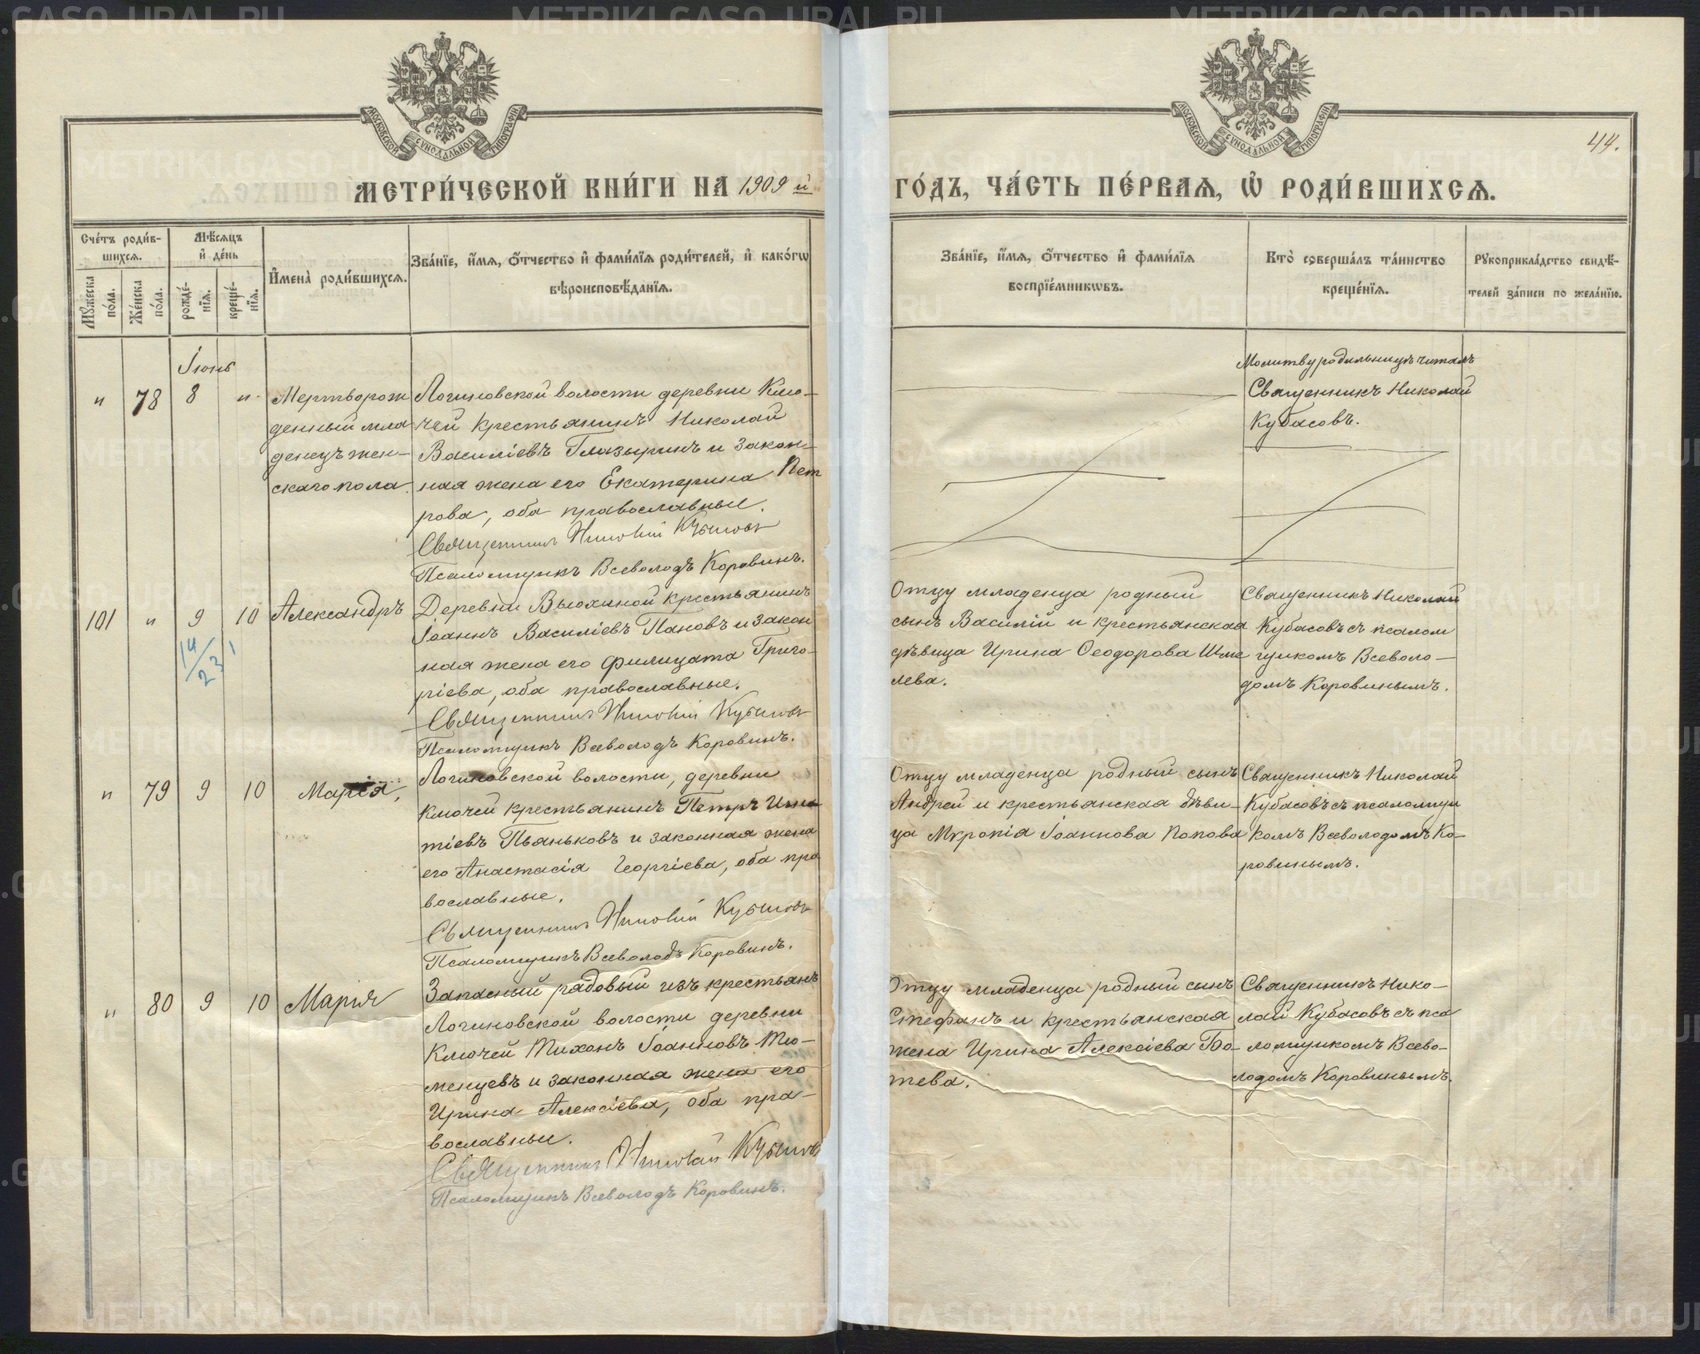 МЕТРИ́ЧЕСКОЙ КНИ́ГИ НА 1909 й
ГО́ДЪ, ЧА́СТЬ ПЕ́РВАЯ, Ѡ҆ РОДИ́ВШИХСѦ.
44.
МОСКОВСКОЙ СѴНОДАЛЬНОЙ ТИПОГРАФІИ
МОСКОВСКОЙ СѴНОДАЛЬНОЙ ТИПОГРАФІИ
Сче́тъ роди́в-
шихсѧ.
Мꙋ́жеска
по́ла.
Же́нска
по́ла.
Мѣ́сѧцъ
и҆ де́нь
рожде́-
нїѧ.
креще́-
нїѧ.
И҆мена̀ роди́вшихсѧ.
Зва́нїе, и҆́мѧ, ѻ҆́тчество и҆ фами́лїѧ роди́телей, и҆ како́гѡ
вѣроисповѣ́данїѧ.
Зва́нїе, и҆́мѧ, ѻ҆́тчество и҆ фами́лїѧ
воспрїе́мникѡвъ.
Кто̀ соверша́лъ та́инство
креще́нїѧ.
Рꙋкоприкла́дство свидѣ́-
телей за́писи по жела́нїю.
Іюнь
„ 78 8 „
Мертворож
денный мла
денецъ жен-
скаго пола.
Логиновской волости деревни Клю-
чей крестьянинъ Николай
Василіевъ Глазыринъ и закон-
ная жена его Екатерина Пет
рова, оба православные.
Священникъ Николай Кубасовъ
Псаломщикъ Всеволодъ Коровинъ.
Молитву родильницѣ читалъ
Священникъ Николай
Кубасовъ.
101 „ 9 10
14/23
Александръ
Деревни Вьюхиной крестьянинъ
Іоаннъ Василіевъ Пановъ и закон
ная жена его Филицата Григо-
ріева, оба православные.
Священникъ Николай Кубасовъ
Псаломщикъ Всеволодъ Коровинъ.
Отцу младенца родный
сынъ Василій и крестьянская
дѣвица Ирина Ѳеодорова Шме
лева.
Священникъ Николай
Кубасовъ съ псалом
щикомъ Всеволо-
домъ Коровинымъ.
„ 79 9 10
Марія,
Логиновской волости, деревни
Ключей крестьянинъ Петръ Игна
тіевъ Пьянковъ и законная жена
его Анастасія Георгіева, оба пра
вославные.
Священникъ Николай Кубасовъ
Псаломщикъ Всеволодъ Коровинъ.
Отцу младенца родный сынъ
Андрей и крестьянская дѣви-
ца Мѵропія Іоаннова Попова
Священникъ Николай
Кубасовъ съ псаломщи
комъ Всеволодомъ Ко-
ровинымъ.
„ 80 9 10
Марія
Запасный рядовый изъ крестьянъ
Логиновской волости деревни
Ключей Тихонъ Іоанновъ Тю-
менцевъ и законная жена его
Ирина Алексіева, оба пра-
вославные.
Священникъ Николай Кубасовъ
Псаломщикъ Всеволодъ Коровинъ.
Отцу младенца родный сынъ
Стефанъ и крестьянская
жена Ирина Алексіева Бо-
тева.
Священникъ Нико-
лай Кубасовъ съ пса
ломщикомъ Всево-
лодомъ Коровинымъ.
METRIKI.GASO-URAL.RU